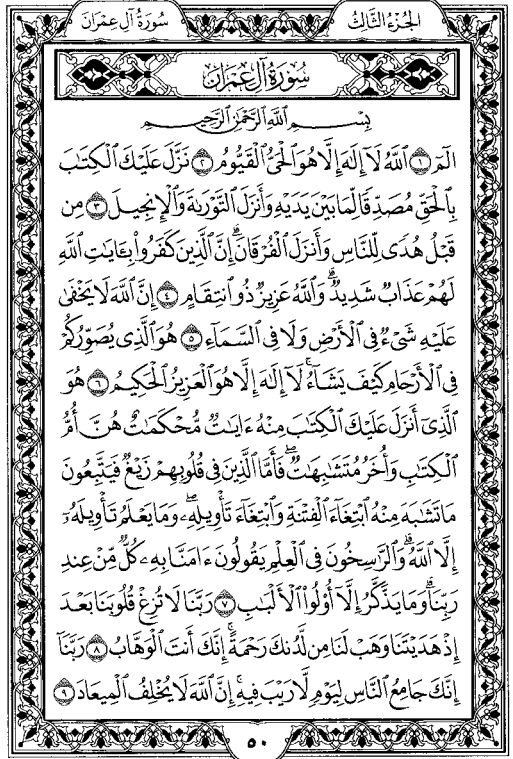 سُورَةُ آلِ عِمْرَانَ
الجُزْءُ الثَّالِثُ
سُورَةُ آلِ عِمْرَانَ
بِسْمِ ٱللَّهِ ٱلرَّحْمَٰنِ ٱلرَّحِيمِ
الٓمٓ ١ ٱللَّهُ لَآ إِلَٰهَ إِلَّا هُوَ ٱلْحَىُّ ٱلْقَيُّومُ ٢ نَزَّلَ عَلَيْكَ ٱلْكِتَٰبَ
بِٱلْحَقِّ مُصَدِّقًا لِّمَا بَيْنَ يَدَيْهِ وَأَنزَلَ ٱلتَّوْرَىٰةَ وَٱلْإِنجِيلَ ٣ مِن
قَبْلُ هُدًى لِّلنَّاسِ وَأَنزَلَ ٱلْفُرْقَانَۗ إِنَّ ٱلَّذِينَ كَفَرُوا۟ بِـَٔايَٰتِ ٱللَّهِ
لَهُمْ عَذَابٌ شَدِيدٌۗ وَٱللَّهُ عَزِيزٌ ذُو ٱنتِقَامٍ ٤ إِنَّ ٱللَّهَ لَا يَخْفَىٰ
عَلَيْهِ شَىْءٌ فِى ٱلْأَرْضِ وَلَا فِى ٱلسَّمَآءِ ٥ هُوَ ٱلَّذِى يُصَوِّرُكُمْ
فِى ٱلْأَرْحَامِ كَيْفَ يَشَآءُۚ لَآ إِلَٰهَ إِلَّا هُوَ ٱلْعَزِيزُ ٱلْحَكِيمُ ٦ هُوَ
ٱلَّذِىٓ أَنزَلَ عَلَيْكَ ٱلْكِتَٰبَ مِنْهُ ءَايَٰتٌ مُّحْكَمَٰتٌ هُنَّ أُمُّ
ٱلْكِتَٰبِ وَأُخَرُ مُتَشَٰبِهَٰتٌۖ فَأَمَّا ٱلَّذِينَ فِى قُلُوبِهِمْ زَيْغٌ فَيَتَّبِعُونَ
مَا تَشَٰبَهَ مِنْهُ ٱبْتِغَآءَ ٱلْفِتْنَةِ وَٱبْتِغَآءَ تَأْوِيلِهِۦۗ وَمَا يَعْلَمُ تَأْوِيلَهُۥٓ
إِلَّا ٱللَّهُۗ وَٱلرَّٰسِخُونَ فِى ٱلْعِلْمِ يَقُولُونَ ءَامَنَّا بِهِۦ كُلٌّ مِّنْ عِندِ
رَبِّنَاۗ وَمَا يَذَّكَّرُ إِلَّآ أُو۟لُوا۟ ٱلْأَلْبَٰبِ ٧ رَبَّنَا لَا تُزِغْ قُلُوبَنَا بَعْدَ
إِذْ هَدَيْتَنَا وَهَبْ لَنَا مِن لَّدُنكَ رَحْمَةًۚ إِنَّكَ أَنتَ ٱلْوَهَّابُ ٨ رَبَّنَآ
إِنَّكَ جَامِعُ ٱلنَّاسِ لِيَوْمٍ لَّا رَيْبَ فِيهِۚ إِنَّ ٱللَّهَ لَا يُخْلِفُ ٱلْمِيعَادَ ٩
٥٠